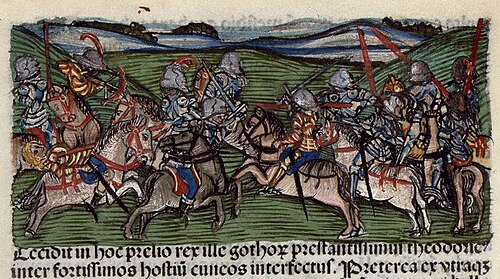 Cecidit in hoc prelio rex ille gothoꝝ prestantissimus theodoric
inter fortissimos hostiū cuneos interfectus. Preterea ex vtraqꝫ